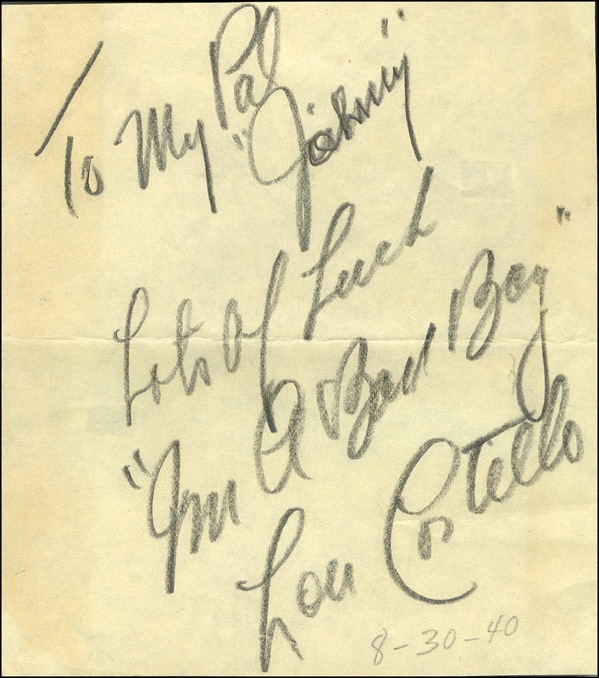 To My Pal
"Johnny"
Lots Of Luck
"Im A Bad Boy"
Lou Costello
8-30-40